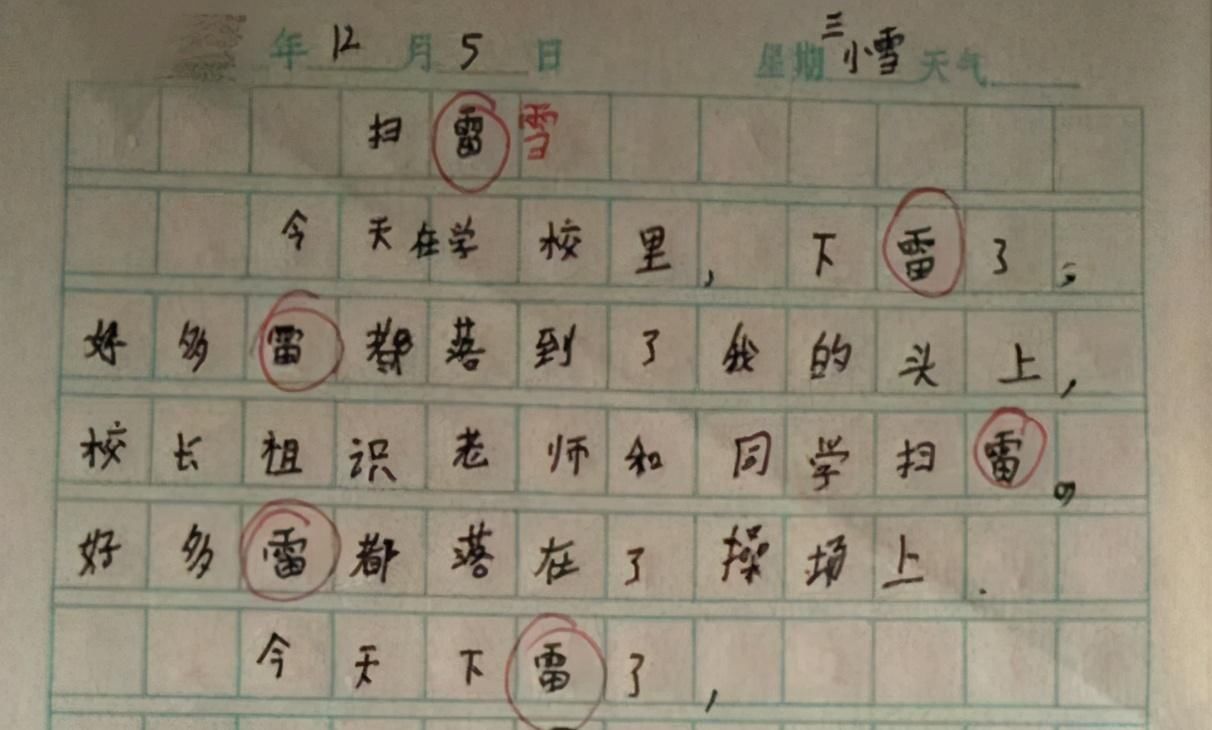 年12月5日 星期三小雪天气
扫雷雪
今天在学校里，下雷了；
好多雷都落到了我的头上，
校长祖识老师和同学扫雷。
好多雷都落在了操场上.
今天下雷了，